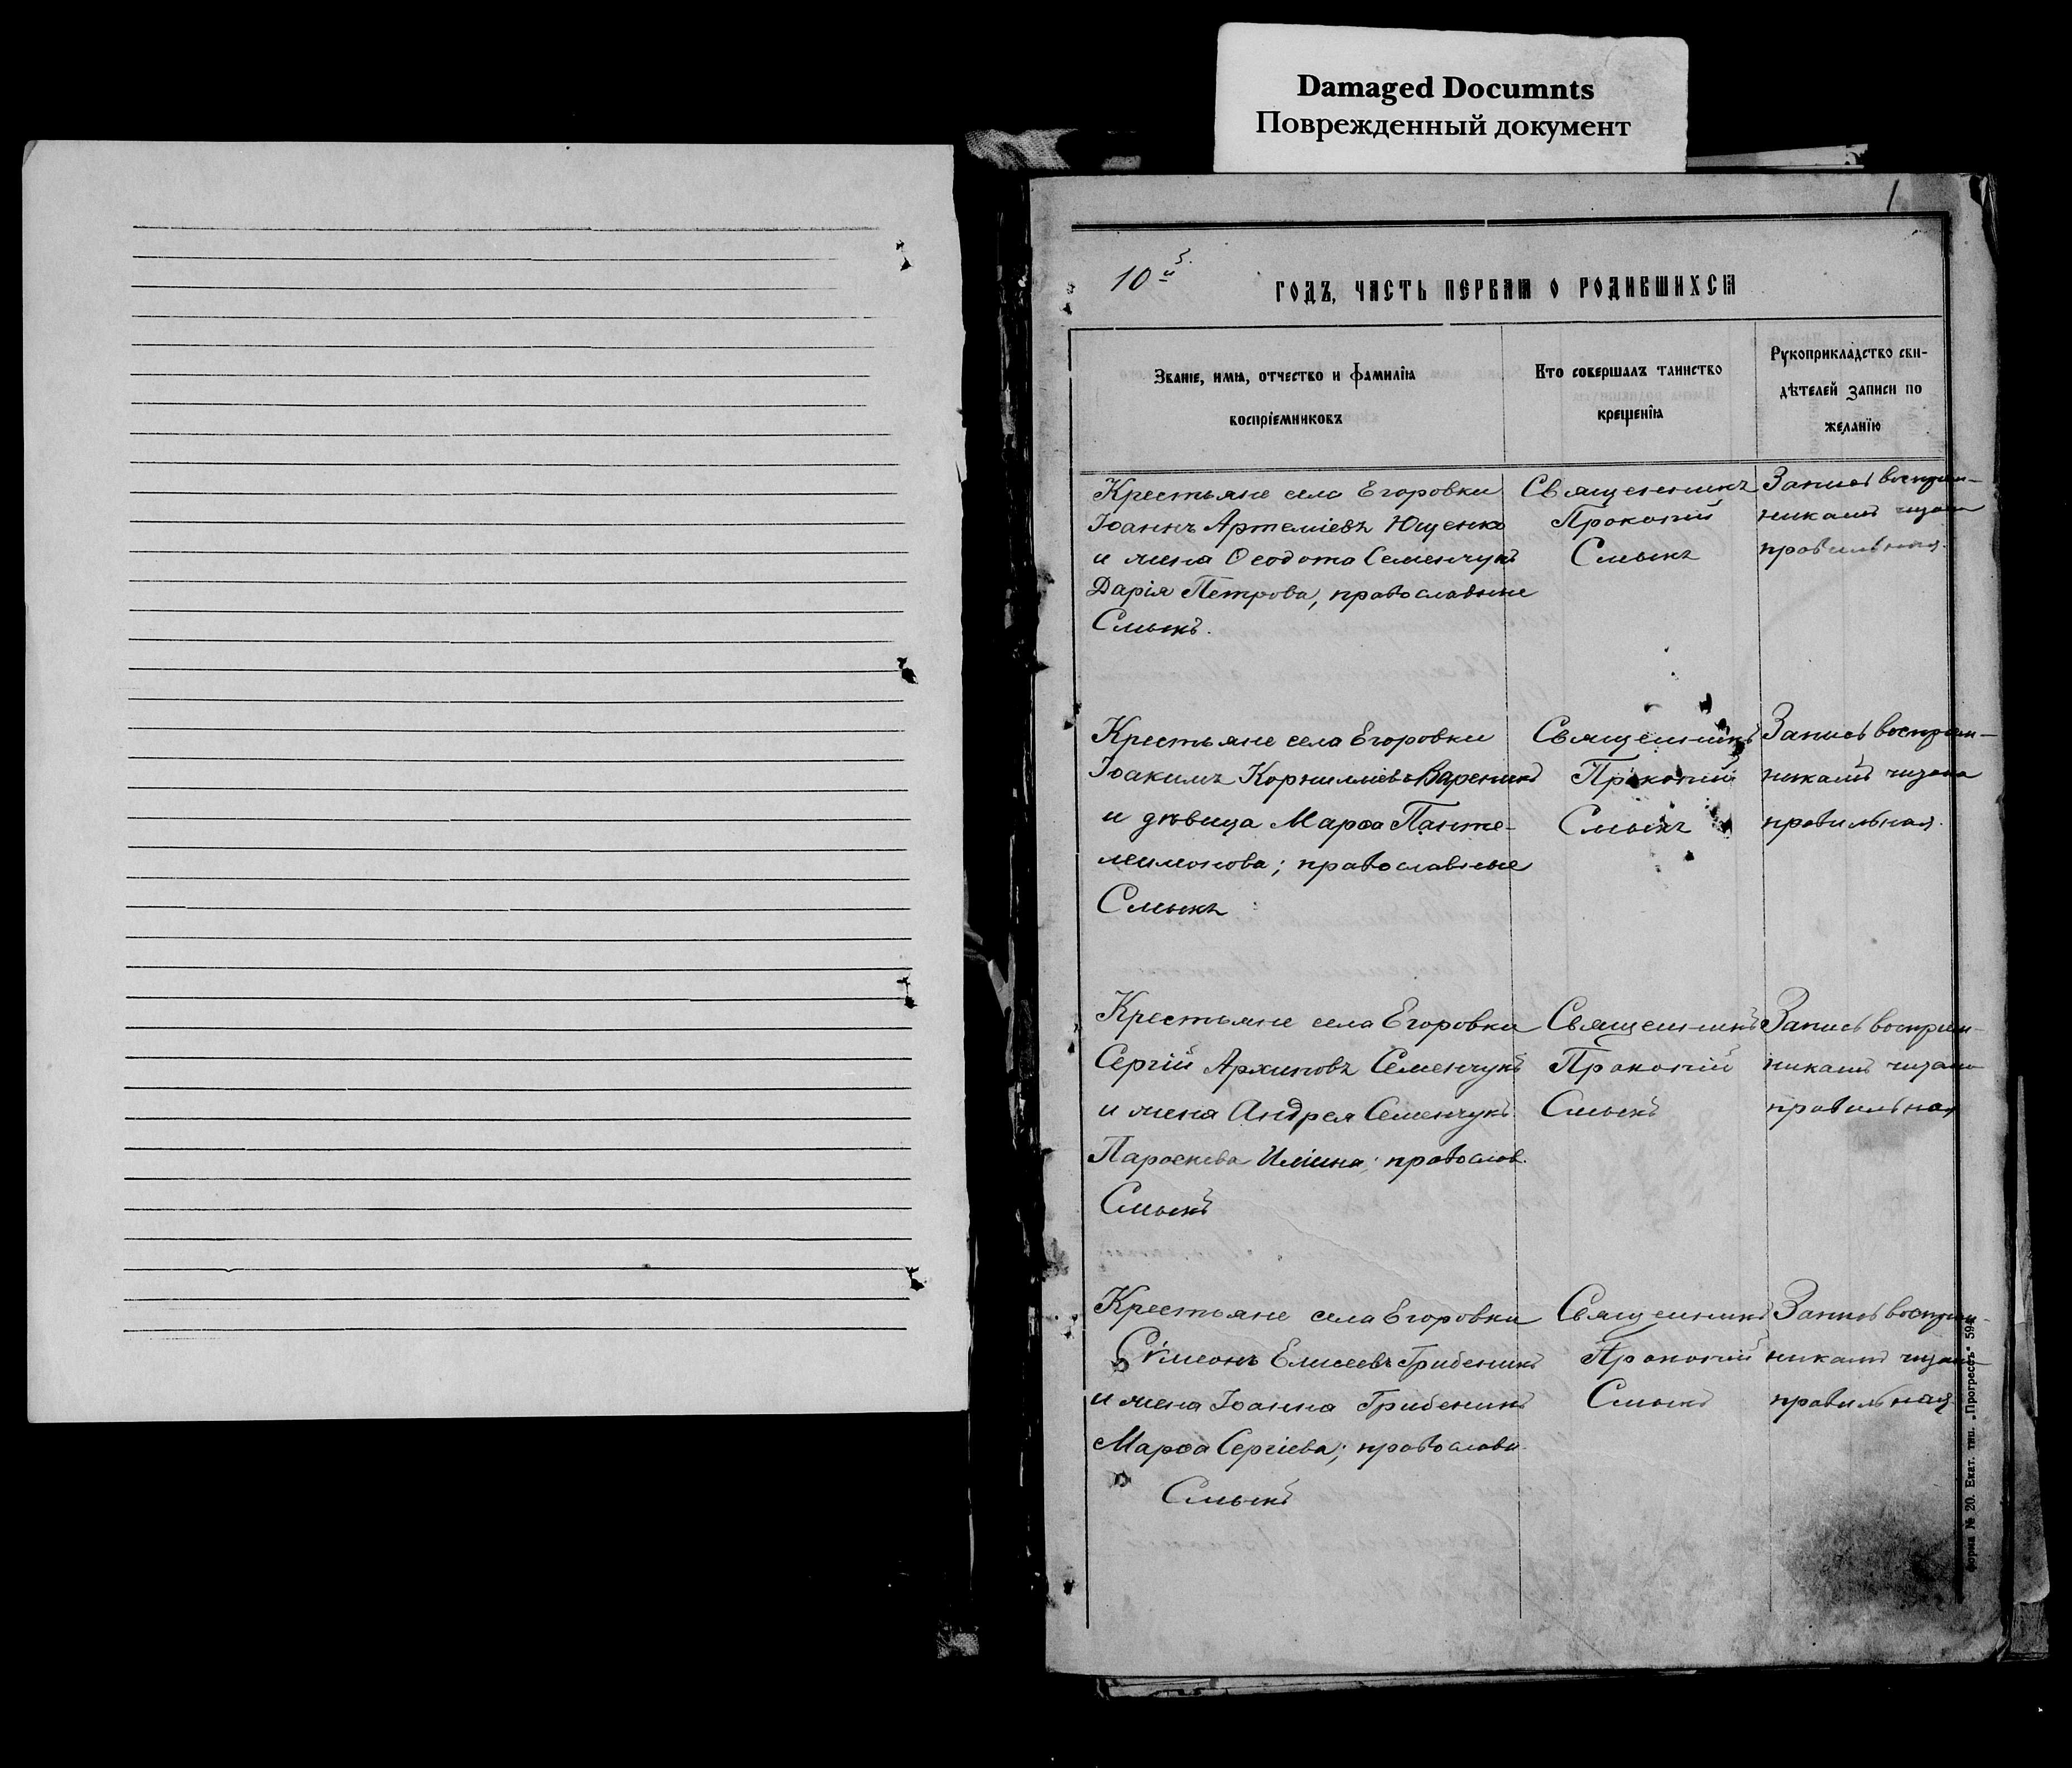 Damaged Documnts
Поврежденный документ
1
10й
ГОДЪ, ЧАСТЬ ПЕРВАЯ О РОДИВШИХСЯ
Званіе, имя, отчество и фамилія
воспріемниковъ
Кто совершалъ таинство
крещенія
Рукоприкладство сви-
дѣтелей записи по
желанію
Крестьяне села Егоровки
Іоаннъ Артеміевъ Ющенко
и жена Ѳеодота Семенчукъ
Дарія Петрова, православные
Смыкъ.
Священникъ
Прокопій
Смыкъ
Запись воспріем-
никамъ читана
правильная.
Крестьяне села Егоровки
Іоакимъ Корниліевъ Вареникъ
и дѣвица Марѳа Панте-
леимонова; православные
Смыкъ
Священникъ
Прокопій
Смыкъ
Запись воспріем-
никамъ читана
правильная.
Крестьяне села Егоровки
Сергій Архиповъ Семенчукъ
и жена Андрея Семенчукъ
Параскева Иліина; православ.
Смыкъ
Священникъ
Прокопій
Смыкъ
Запись воспріем-
никамъ читана
правильная
Крестьяне села Егоровки
Сѵмеонъ Елисеевъ Грибеникъ
и жена Іоанна Грибеникъ
Марѳа Сергіева; православн.
Смыкъ
Священникъ
Прокопій
Смыкъ
Запись воспріем-
никамъ читана
правильная
Форма № 20. Екат. тип. „Прогрессъ" 594